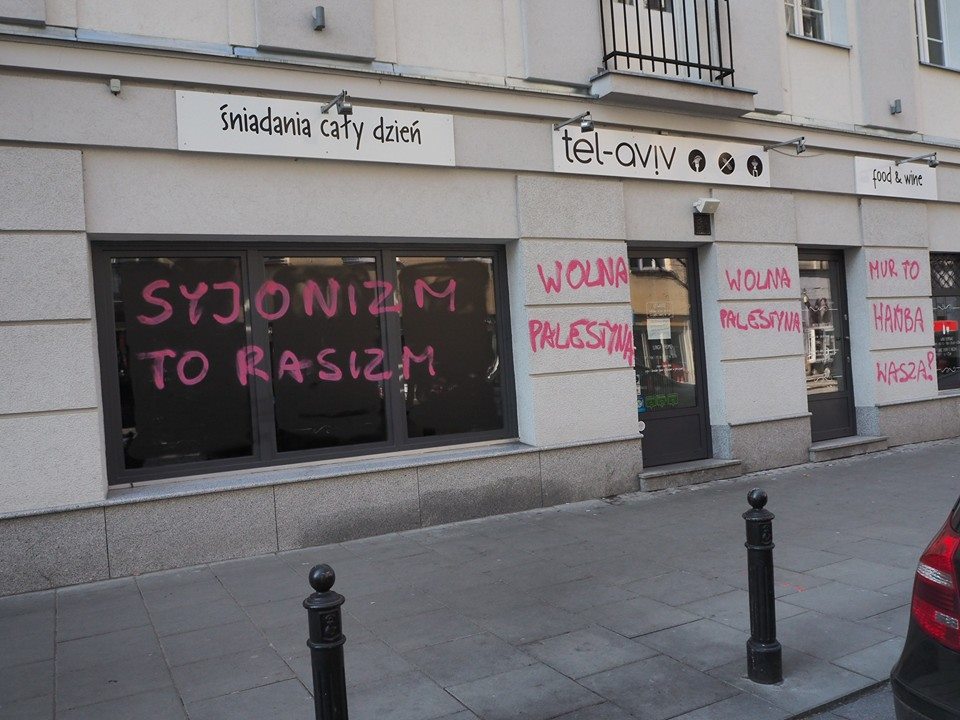 śniadania cały dzień
tel-aviv
food & wine
SYJONIZM
TO RASIZM
WOLNA
PALESTYNA
WOLNA
PALESTYNA
MUR TO
HAŃBA
WASZA!